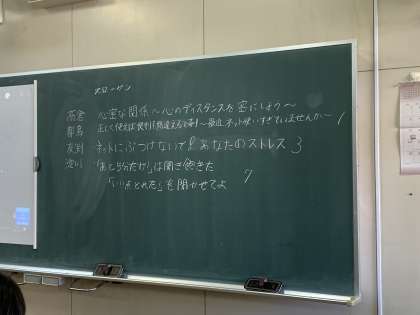 スローガン
心密な関係〜心のディスタンスを密にしよう〜
正しく使えば便利 間違えると毒! 〜最近ネット使いすぎていませんか〜 1
友到 ネットにぶつけないで!あなたのストレス 3
「あと5分だけ」は聞き飽きた
「いい点とれた」を聞かせてよ 7